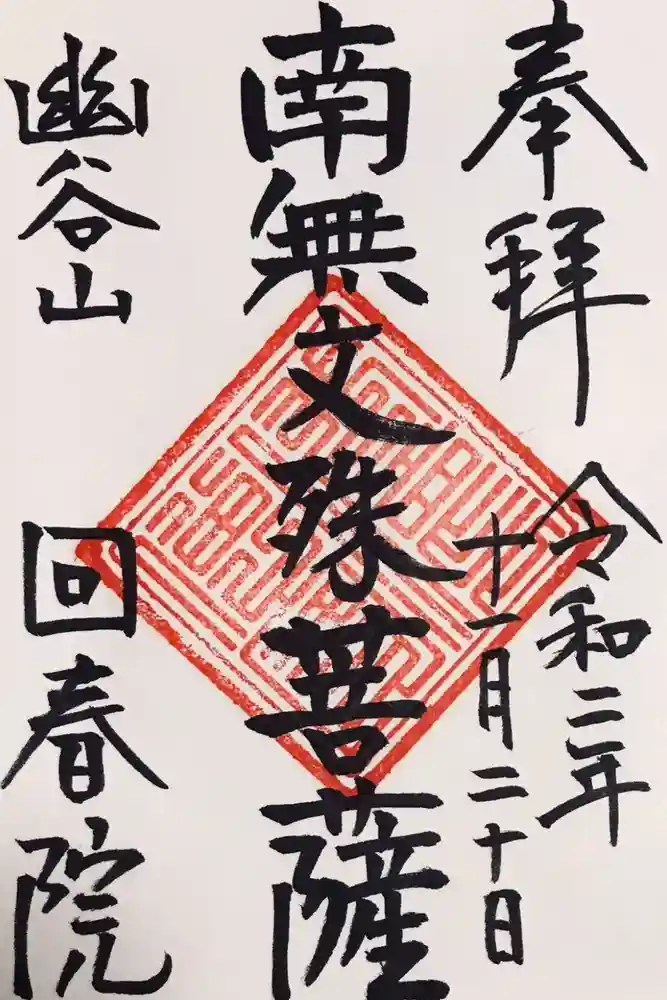 奉拝
令和二年
十一月二十日
南無文殊菩薩
幽谷山
回春院